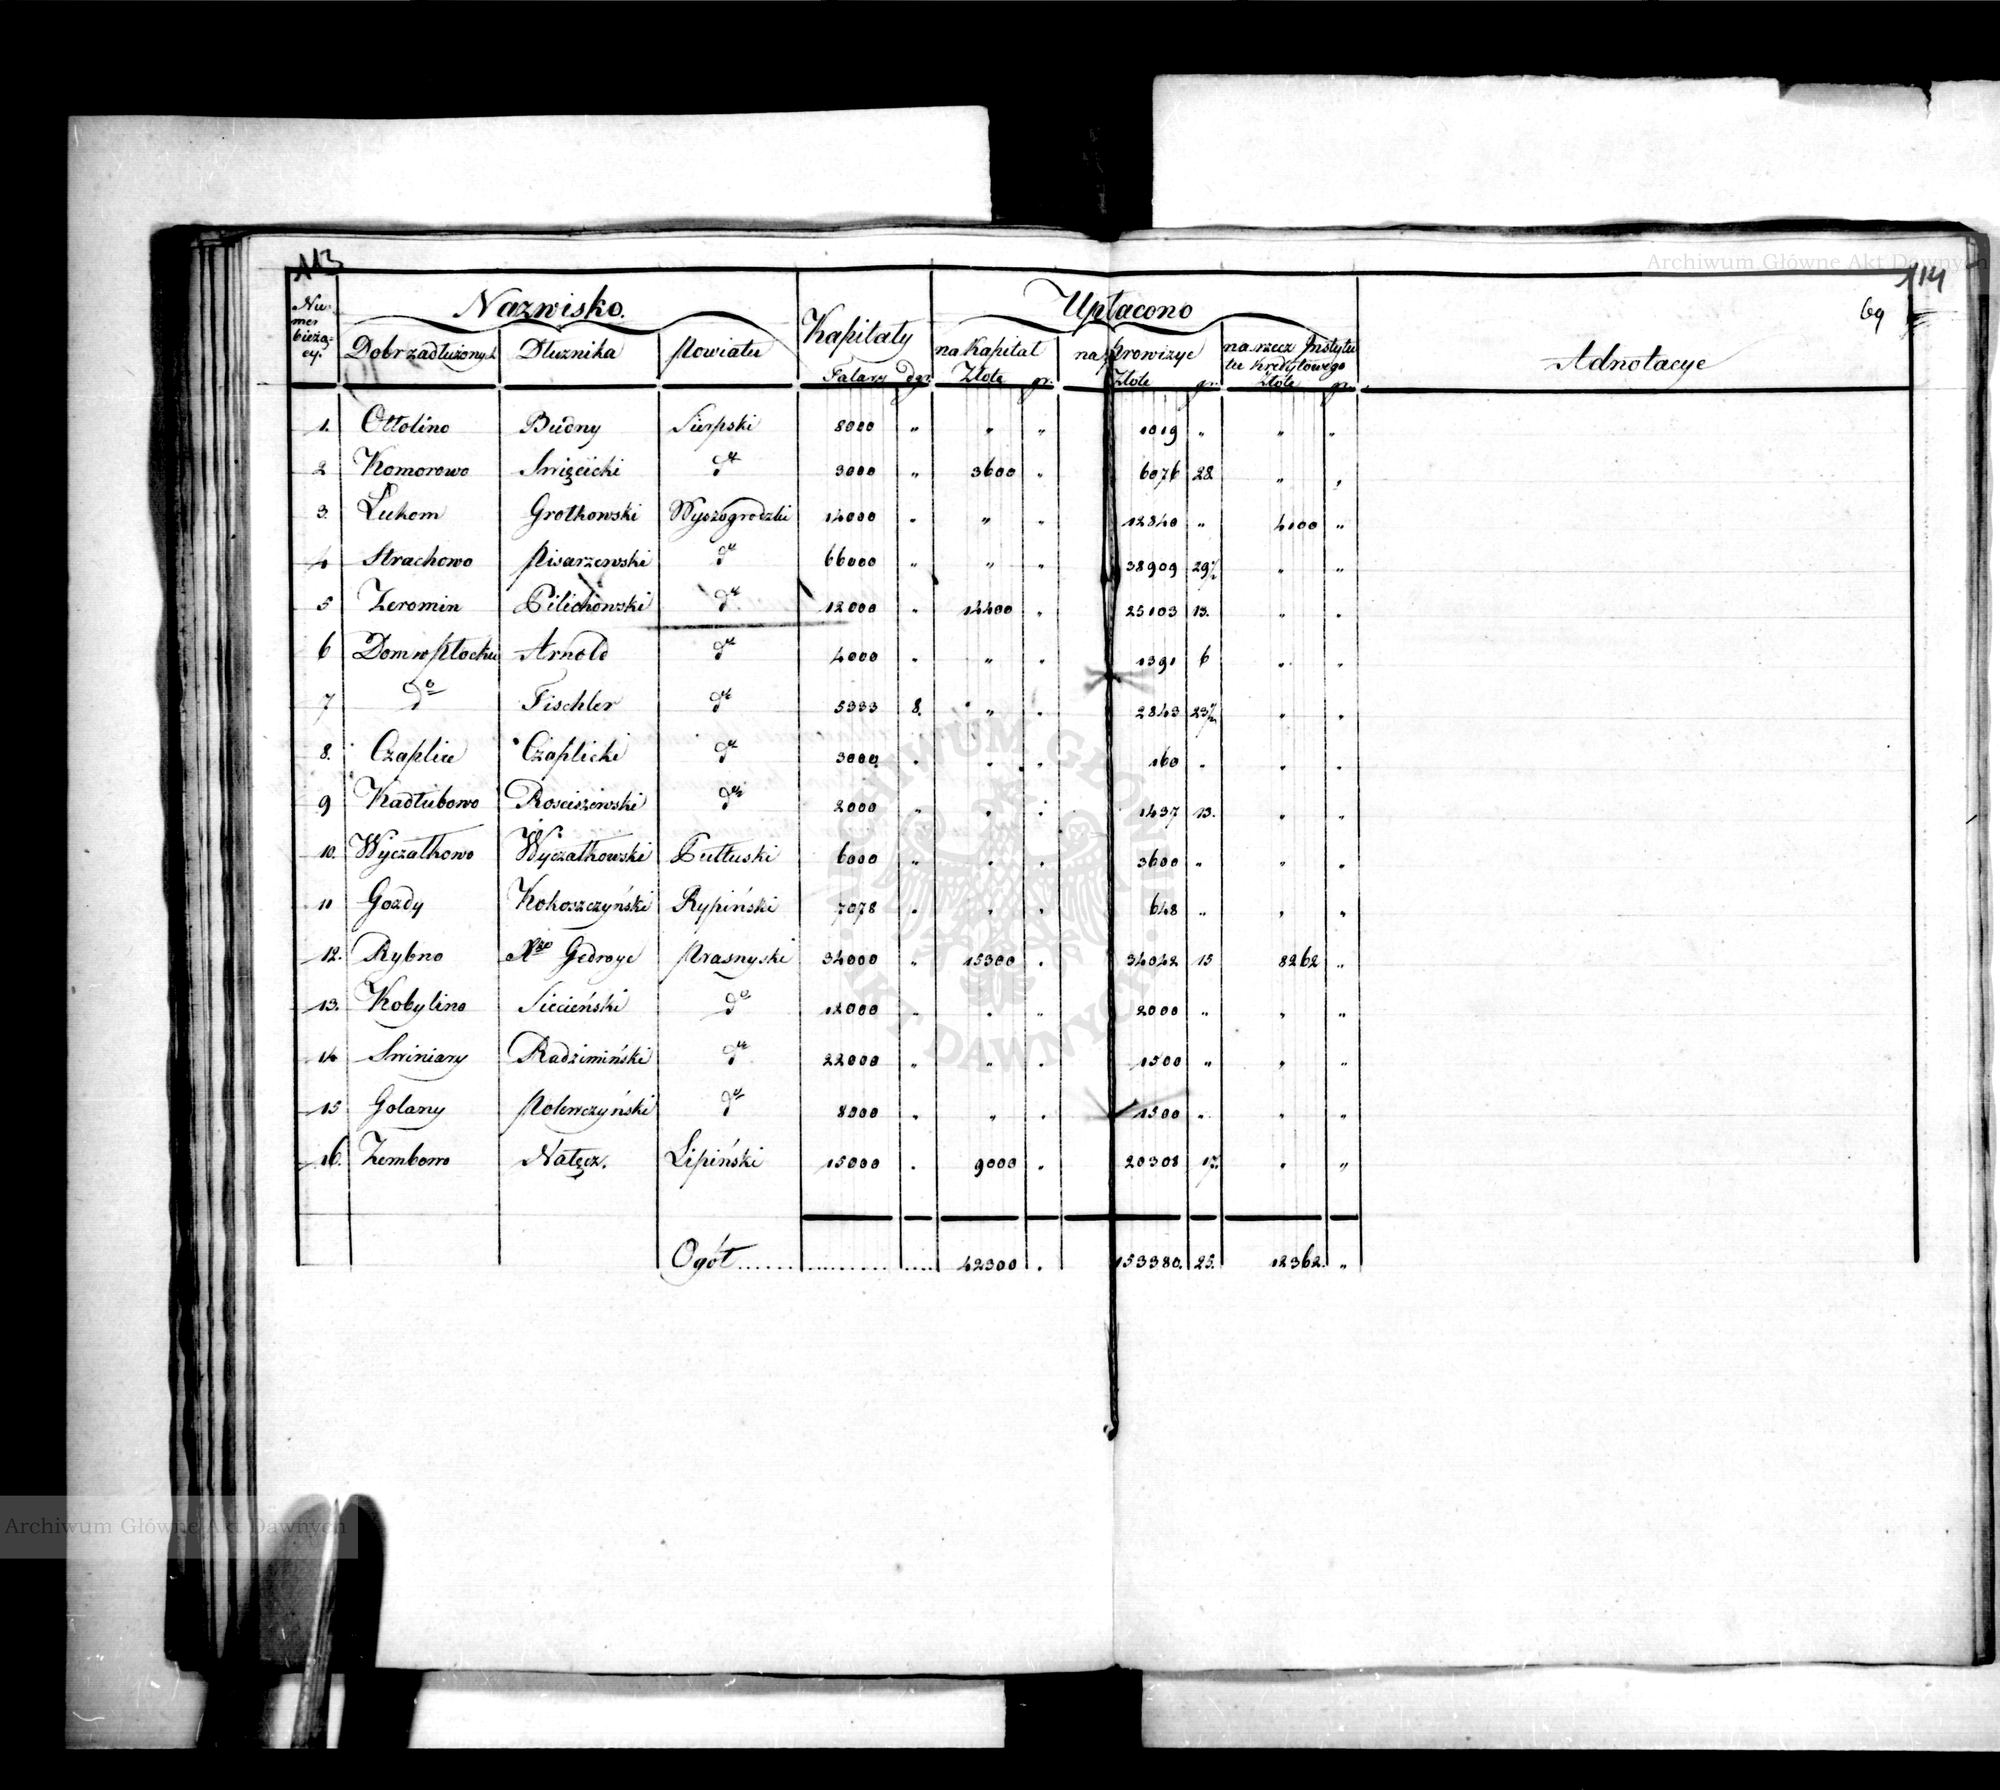 113
114
69
Archiwum Główne Akt Dawnych
Numer bieżący.
Nazwisko.
Kapitały
Upłacono
Adnotacye
Dobr zadłużonych
Dłużnika
Powiatu
na Kapitał
na prowizye
na rzecz Instytutu Kredytowego
Talary dgr.
Złote gr.
Złote gr.
Złote gr.
1. Ottolino Budny Sierpski 8000 " " " 1019 " " "
2 Komorowo Swięcicki do 3000 " 3600 " 6076 28 " "
3. Łukom Grotkowski Wyszogrodzki 14000 " " " 12840 " 4100 "
4 Strachowo Pisarzewski do 66000 " " " 38909 29½ " "
5 Zeromin Pilichowski do 12000 " 14400 " 25103 13. " "
6 Dom w Płocku Arnold do 4000 " " " 1391 6 " "
7 do Fischler do 5333 8. " " 2843 23½ " "
8. Czaplice Czaplicki do 3000 " " " 160 " " "
9 Kadłubowo Rosciszewski do 2000 " " " 1437 13. " "
10. Wyczałkowo Wyczałkowski Pułtuski 6000 " " " 3600 " " "
11 Gozdy Kokoszczyński Rypiński 7078 " " " 648 " " "
12. Rybno Gedroyc Prasnyski 34000 " 15300 " 34042 15 8262 "
13. Kobylino Siecieński do 12000 " " " 2000 " " "
14 Swiniary Radzimiński do 22000 " " " 1500 " " "
15 Golany Polewczyński do 8000 " " " 1500 " " "
16. Zembowo Nałęcz. Lipiński 15000 " 9000 " 20308 17. " "
Ogół.................. .... 42300 . 153380. 25. 12362. "
ARCHIWUM GŁÓWNE AKT DAWNYCH
Archiwum Główne Akt Dawnych